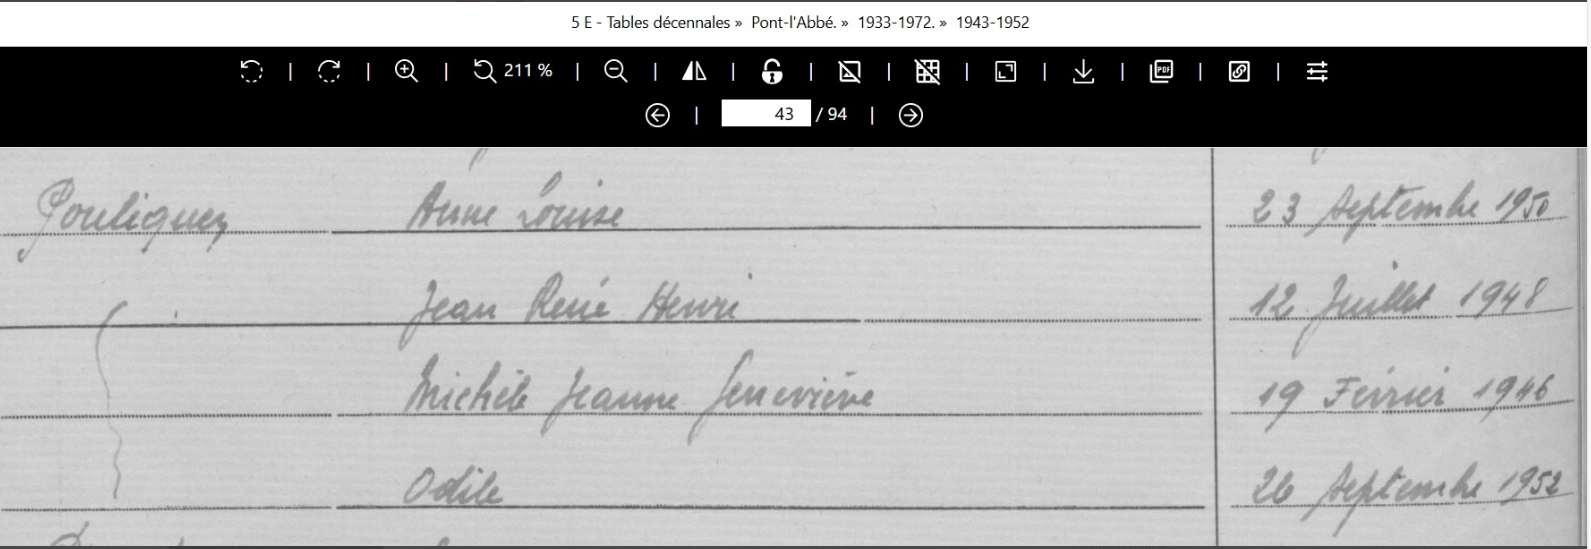 5 E - Tables décennales » Pont-l'Abbé. » 1933-1972. » 1943-1952
211 %
PDF
43 / 94
Pouliquen Anne Louise 23 Septembre 1950
Jean René Henri 12 Juillet 1948
Michèle Jeanne Geneviève 19 Février 1946
Odile 26 Septembre 1952